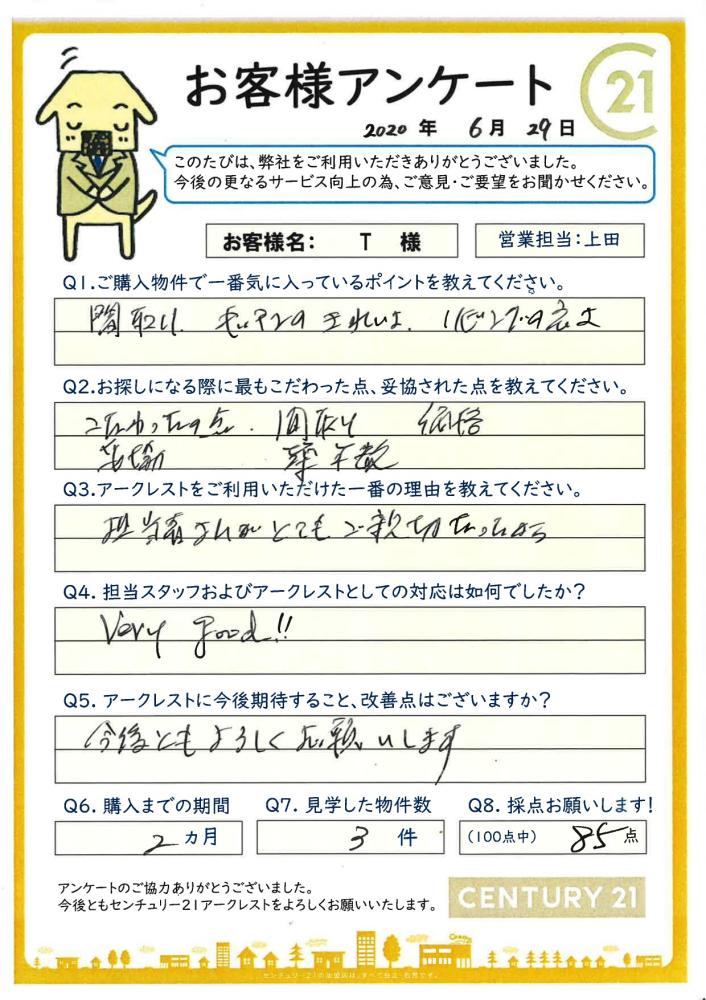 お客様アンケート
21
2020 年 6月 29日
このたびは、弊社をご利用いただきありがとうございました。
今後の更なるサービス向上の為、ご意見・ご要望をお聞かせください。
お客様名: T 様
営業担当:上田
Q1.ご購入物件で一番気に入っているポイントを教えてください。
間取り. キッチンの きれいさ. リビングの広さ
Q2.お探しになる際に最もこだわった点、妥協された点を教えてください。
こだわったの点. 間取り 価格
妥協 築年数
Q3.アークレストをご利用いただけた一番の理由を教えてください。
担当者さんがとてもご親切だったから
Q4. 担当スタッフおよびアークレストとしての対応は如何でしたか?
Very good!!
Q5. アークレストに今後期待すること、改善点はございますか?
今後ともよろしくお願いします
Q6. 購入までの期間 Q7. 見学した物件数 Q8. 採点お願いします!
2 カ月 3 件 (100点中) 85 点
アンケートのご協力ありがとうございました。
今後ともセンチュリー21アークレストをよろしくお願いいたします。
CENTURY 21
センチュリー21の加盟店は、すべて独立・自営です。